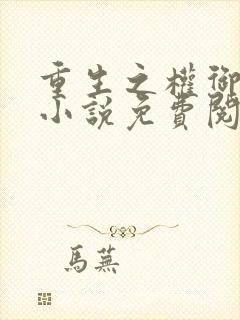 重生之權御
小說免費閱
馬蕪